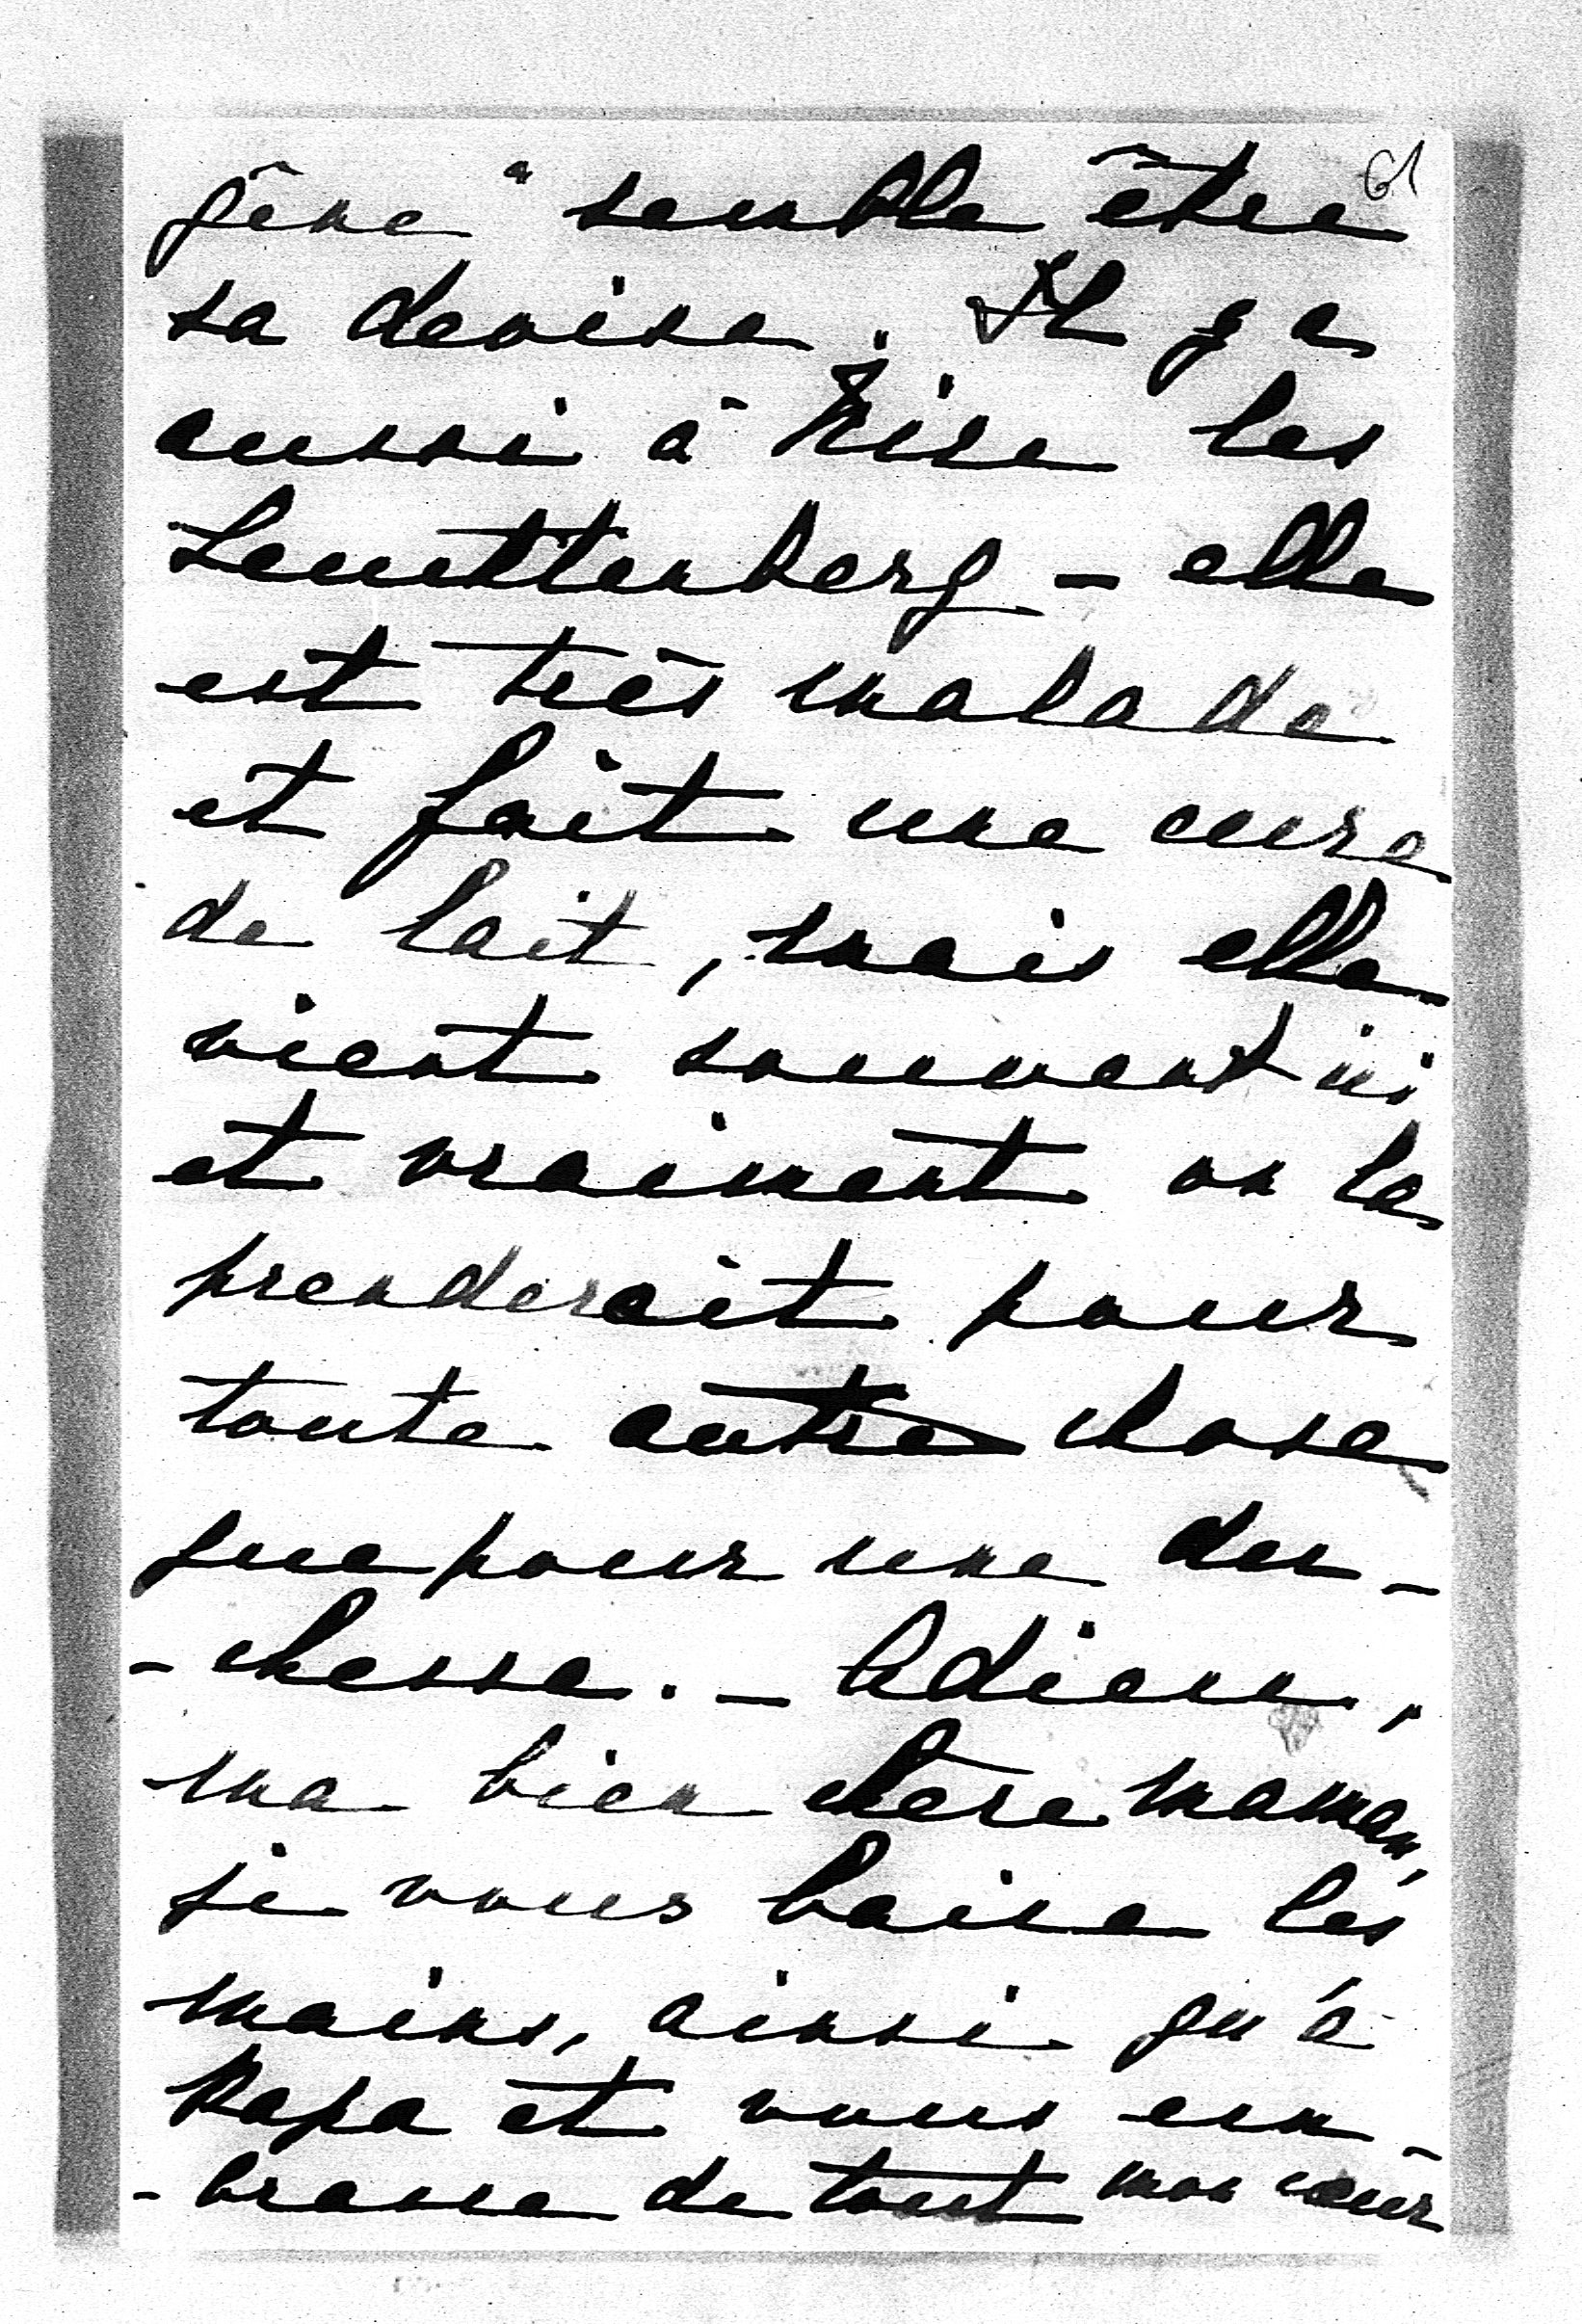 61
gêne" semble être
sa devise. Il y a
aussi à Nise les
Leuchtenberg - elle
est très malade
et fait une cure
de lait, mais elle
vient souvent ici
et vraiment on la
prenderait pour
toute autre chose
que pour une du-
-chesse. - Adieu,
ma bien chère maman,
je vous baise les
mains, ainsi qu'à
Papa et vous em-
-brasse de tout mon cœur